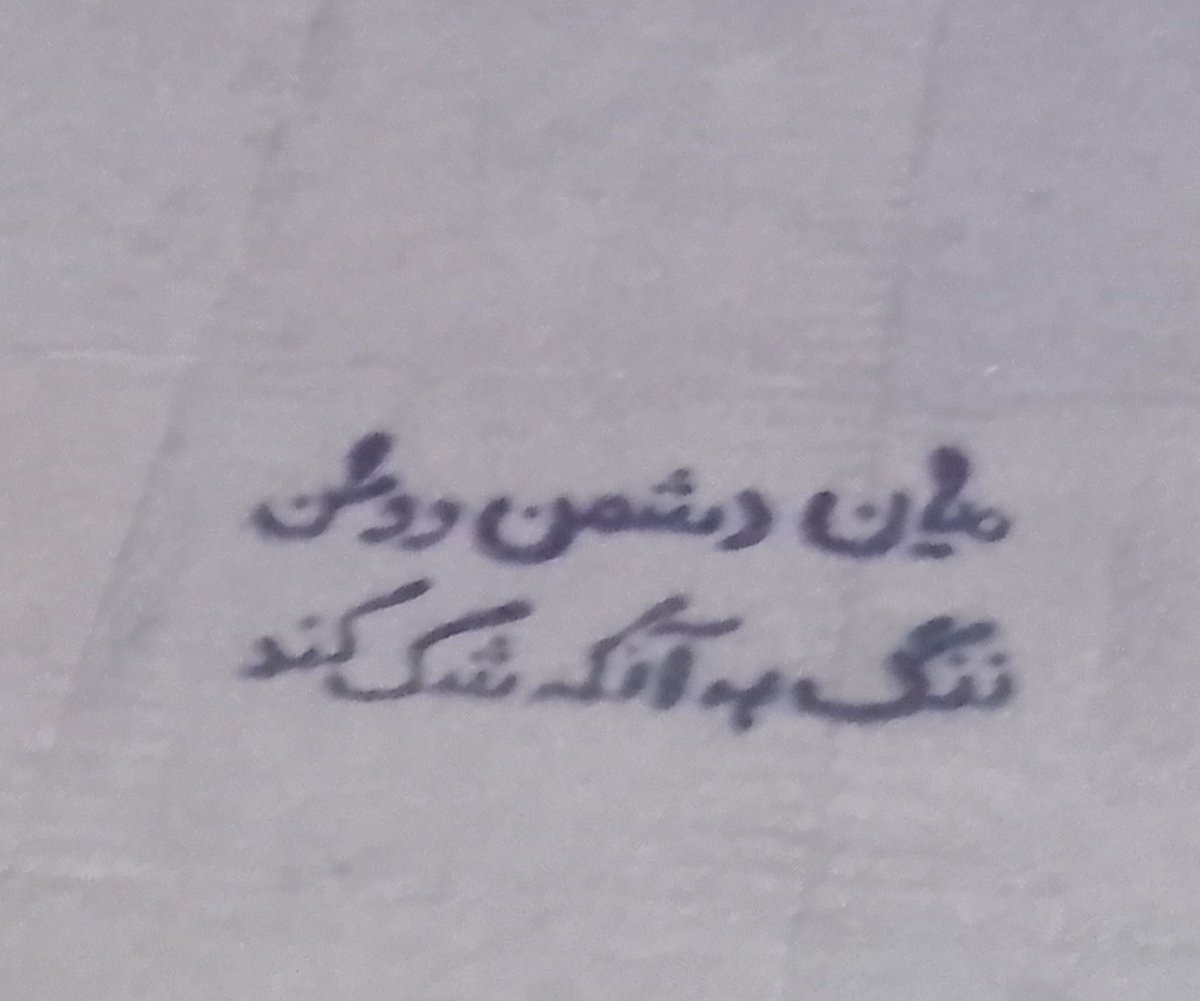 میان دشمن و وطن
ننگ به آنکه شک کند